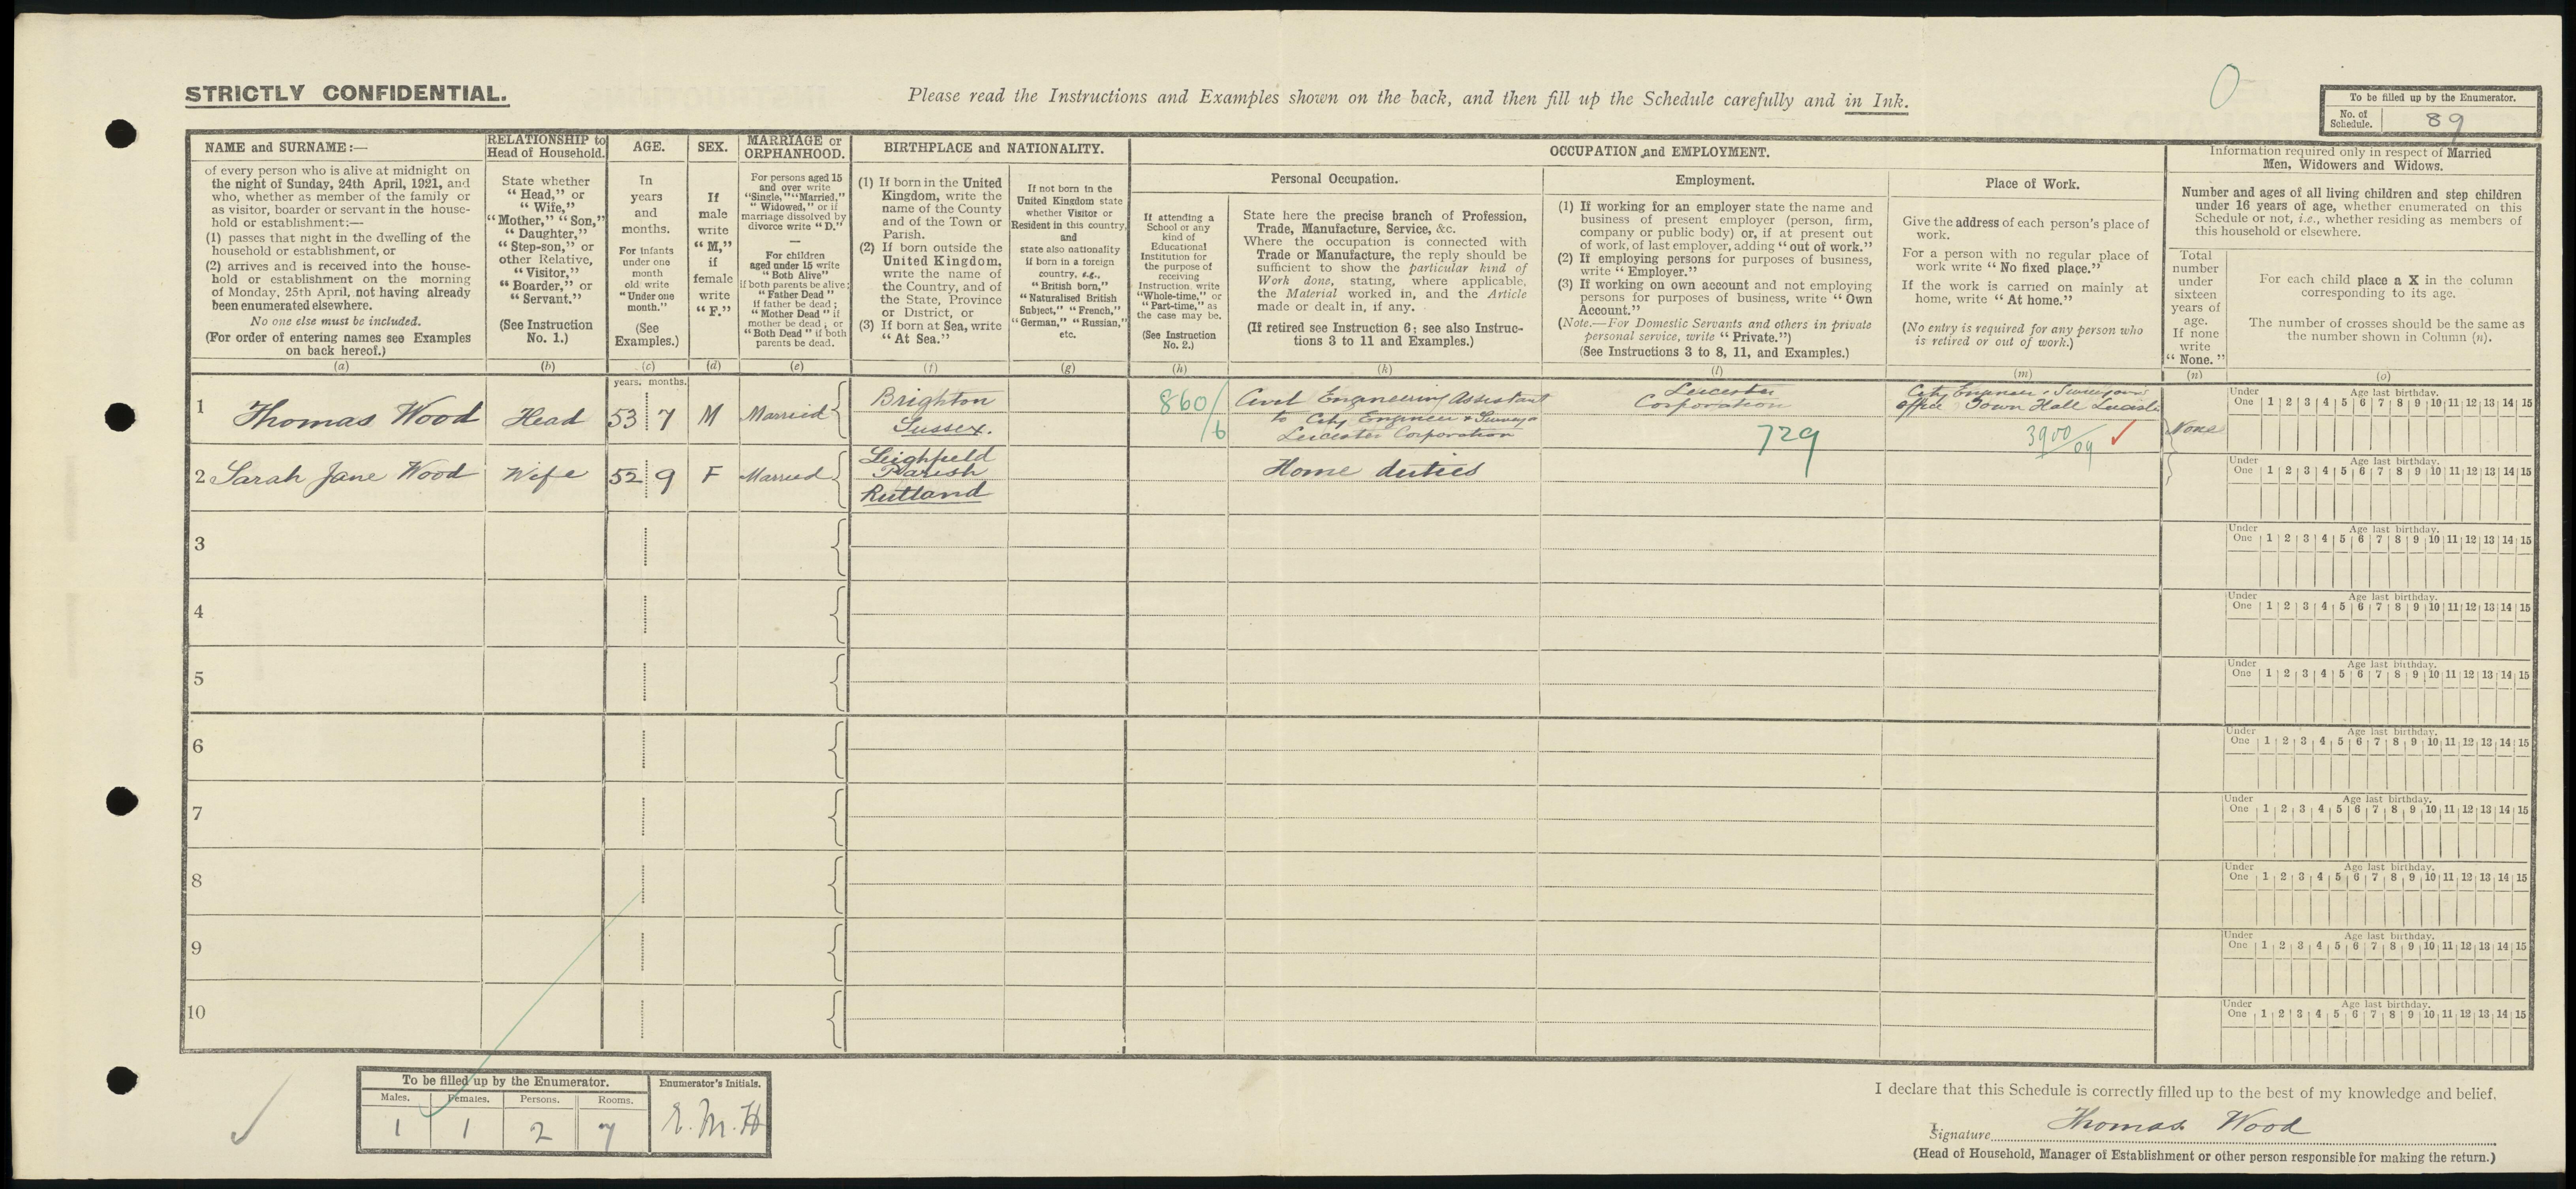 STRICTLY CONFIDENTIAL.
Please read the Instructions and Examples shown on the back, and then fill up the Schedule carefully and in Ink.
0
To be filled up by the Enumerator.
No. of Schedule. 89
NAME and SURNAME:—
of every person who is alive at midnight on
the night of Sunday, 24th April, 1921, and
who, whether as member of the family or
as visitor, boarder or servant in the house-
hold or establishment:—
(1) passes that night in the dwelling of the
household or establishment, or
(2) arrives and is received into the house-
hold or establishment on the morning
of Monday, 25th April, not having already
been enumerated elsewhere.
No one else must be included.
(For order of entering names see Examples
on back hereof.)
(a)
RELATIONSHIP to
Head of Household.
State whether
"Head," or
"Wife,"
"Mother," "Son,"
"Daughter,"
"Step-son," or
other Relative,
"Visitor,"
"Boarder," or
"Servant."
(See Instruction
No. 1.)
(b)
AGE.
In
years
and
months.
For infants
under one
month
old write
"Under one
month."
(See
Examples.)
(c)
SEX.
If
male
write
"M,"
if
female
write
"F."
(d)
MARRIAGE or
ORPHANHOOD.
For persons aged 15
and over write
"Single," "Married,"
"Widowed," or if
marriage dissolved by
divorce write "D."
—
For children
aged under 15 write
"Both Alive"
if both parents be alive;
"Father Dead"
if father be dead;
"Mother Dead" if
mother be dead; or
"Both Dead" if both
parents be dead.
(e)
BIRTHPLACE and NATIONALITY.
(1) If born in the United
Kingdom, write the
name of the County
and of the Town or
Parish.
(2) If born outside the
United Kingdom,
write the name of
the Country, and of
the State, Province
or District, or
(3) If born at Sea, write
"At Sea."
(f)
If not born in the
United Kingdom state
whether Visitor or
Resident in this country,
and
state also nationality
if born in a foreign
country, e.g.,
"British born,"
"Naturalised British
Subject," "French,"
"German," "Russian,"
etc.
(g)
OCCUPATION and EMPLOYMENT.
Personal Occupation.
If attending a
School or any
kind of
Educational
Institution for
the purpose of
receiving
Instruction write
"Whole-time," or
"Part-time," as
the case may be.
(See Instruction
No. 2.)
(h)
State here the precise branch of Profession,
Trade, Manufacture, Service, &c.
Where the occupation is connected with
Trade or Manufacture, the reply should be
sufficient to show the particular kind of
Work done, stating, where applicable,
the Material worked in, and the Article
made or dealt in, if any.
(If retired see Instruction 6; see also Instruc-
tions 3 to 11 and Examples.)
(k)
Employment.
(1) If working for an employer state the name and
business of present employer (person, firm,
company or public body) or, if at present out
of work, of last employer, adding "out of work."
(2) If employing persons for purposes of business,
write "Employer."
(3) If working on own account and not employing
persons for purposes of business, write "Own
Account."
(Note.—For Domestic Servants and others in private
personal service, write "Private.")
(See Instructions 3 to 8, 11, and Examples.)
(l)
Place of Work.
Give the address of each person's place of
work.
For a person with no regular place of
work write "No fixed place."
If the work is carried on mainly at
home, write "At home."
(No entry is required for any person who
is retired or out of work.)
(m)
Information required only in respect of Married
Men, Widowers and Widows.
Number and ages of all living children and step children
under 16 years of age, whether enumerated on this
Schedule or not, i.e., whether residing as members of
this household or elsewhere.
Total
number
under
sixteen
years of
age.
If none
write
"None."
(n)
For each child place a X in the column
corresponding to its age.
The number of crosses should be the same as
the number shown in Column (n).
(o)
years. months.
1 Thomas Wood Head 53 7 M Married
Brighton
Sussex.
860/6
Civil Engineering Assistant
to City Engineer & Surveyor
Leicester Corporation
Leicester
Corporation
729
City Engineer & Surveyors
office Town Hall Leicester
3900/09 ✓
None
Under One Age last birthday. 1 2 3 4 5 6 7 8 9 10 11 12 13 14 15
2 Sarah Jane Wood Wife 52 9 F Married
Leighfield
Parish
Rutland
Home duties
Under One Age last birthday. 1 2 3 4 5 6 7 8 9 10 11 12 13 14 15
3
Under One Age last birthday. 1 2 3 4 5 6 7 8 9 10 11 12 13 14 15
4
Under One Age last birthday. 1 2 3 4 5 6 7 8 9 10 11 12 13 14 15
5
Under One Age last birthday. 1 2 3 4 5 6 7 8 9 10 11 12 13 14 15
6
Under One Age last birthday. 1 2 3 4 5 6 7 8 9 10 11 12 13 14 15
7
Under One Age last birthday. 1 2 3 4 5 6 7 8 9 10 11 12 13 14 15
8
Under One Age last birthday. 1 2 3 4 5 6 7 8 9 10 11 12 13 14 15
9
Under One Age last birthday. 1 2 3 4 5 6 7 8 9 10 11 12 13 14 15
10
Under One Age last birthday. 1 2 3 4 5 6 7 8 9 10 11 12 13 14 15
To be filled up by the Enumerator.
Males. Females. Persons. Rooms.
1 1 2 7
Enumerator's Initials.
E.M.H
I declare that this Schedule is correctly filled up to the best of my knowledge and belief.
Signature Thomas Wood
(Head of Household, Manager of Establishment or other person responsible for making the return.)